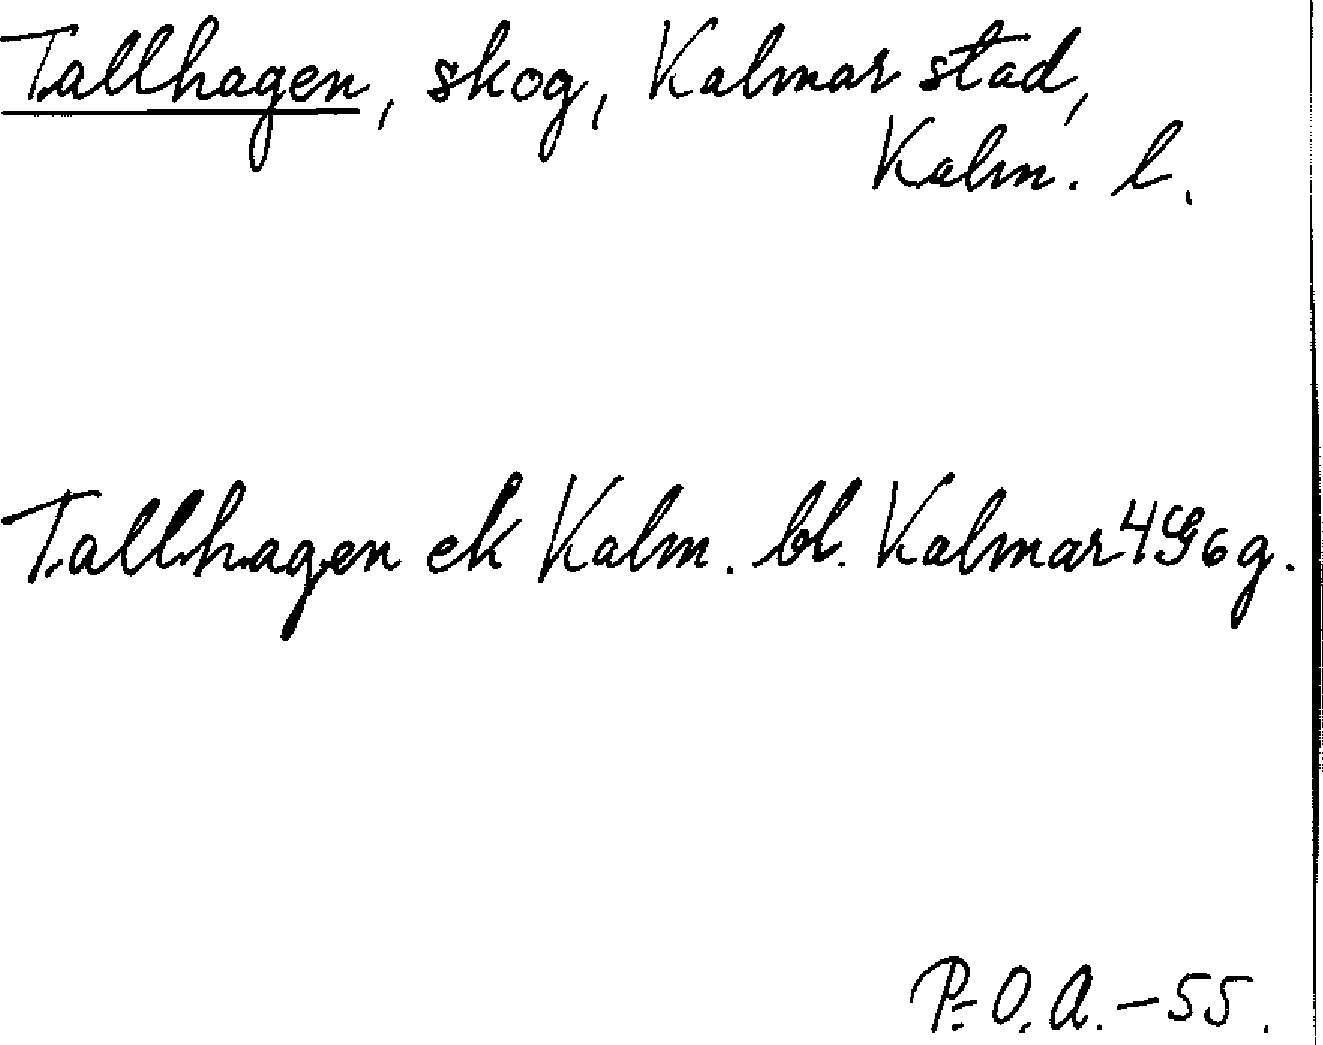 Tallhagen, skog, Kalmar stad,
Kalm. l.
Tallhagen ek Kalm. bl. Kalmar 4G6g.
P.O.A.-55.